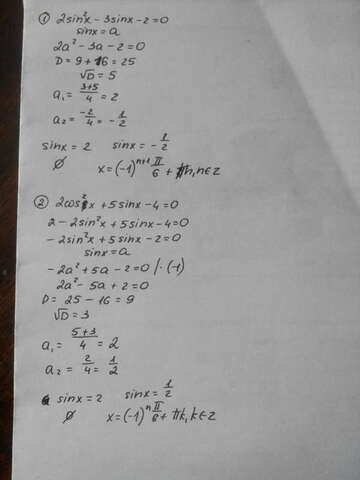 ① 2sin²x - 3sinx - 2 = 0
sinx = a
2a² - 3a - 2 = 0
D = 9 + 16 = 25
√D = 5
a₁ = (3+5)/4 = 2
a₂ = -2/4 = -1/2
sinx = 2 sinx = -1/2
∅ x = (-1)ⁿ⁺¹ π/6 + πn, n∈Z
② 2cos²x + 5sinx - 4 = 0
2 - 2sin²x + 5sinx - 4 = 0
- 2sin²x + 5sinx - 2 = 0
sinx = a
- 2a² + 5a - 2 = 0 /·(-1)
2a² - 5a + 2 = 0
D = 25 - 16 = 9
√D = 3
a₁ = (5+3)/4 = 2
a₂ = 2/4 = 1/2
sinx = 2 sinx = 1/2
∅ x = (-1)ⁿ π/6 + πk, k∈Z